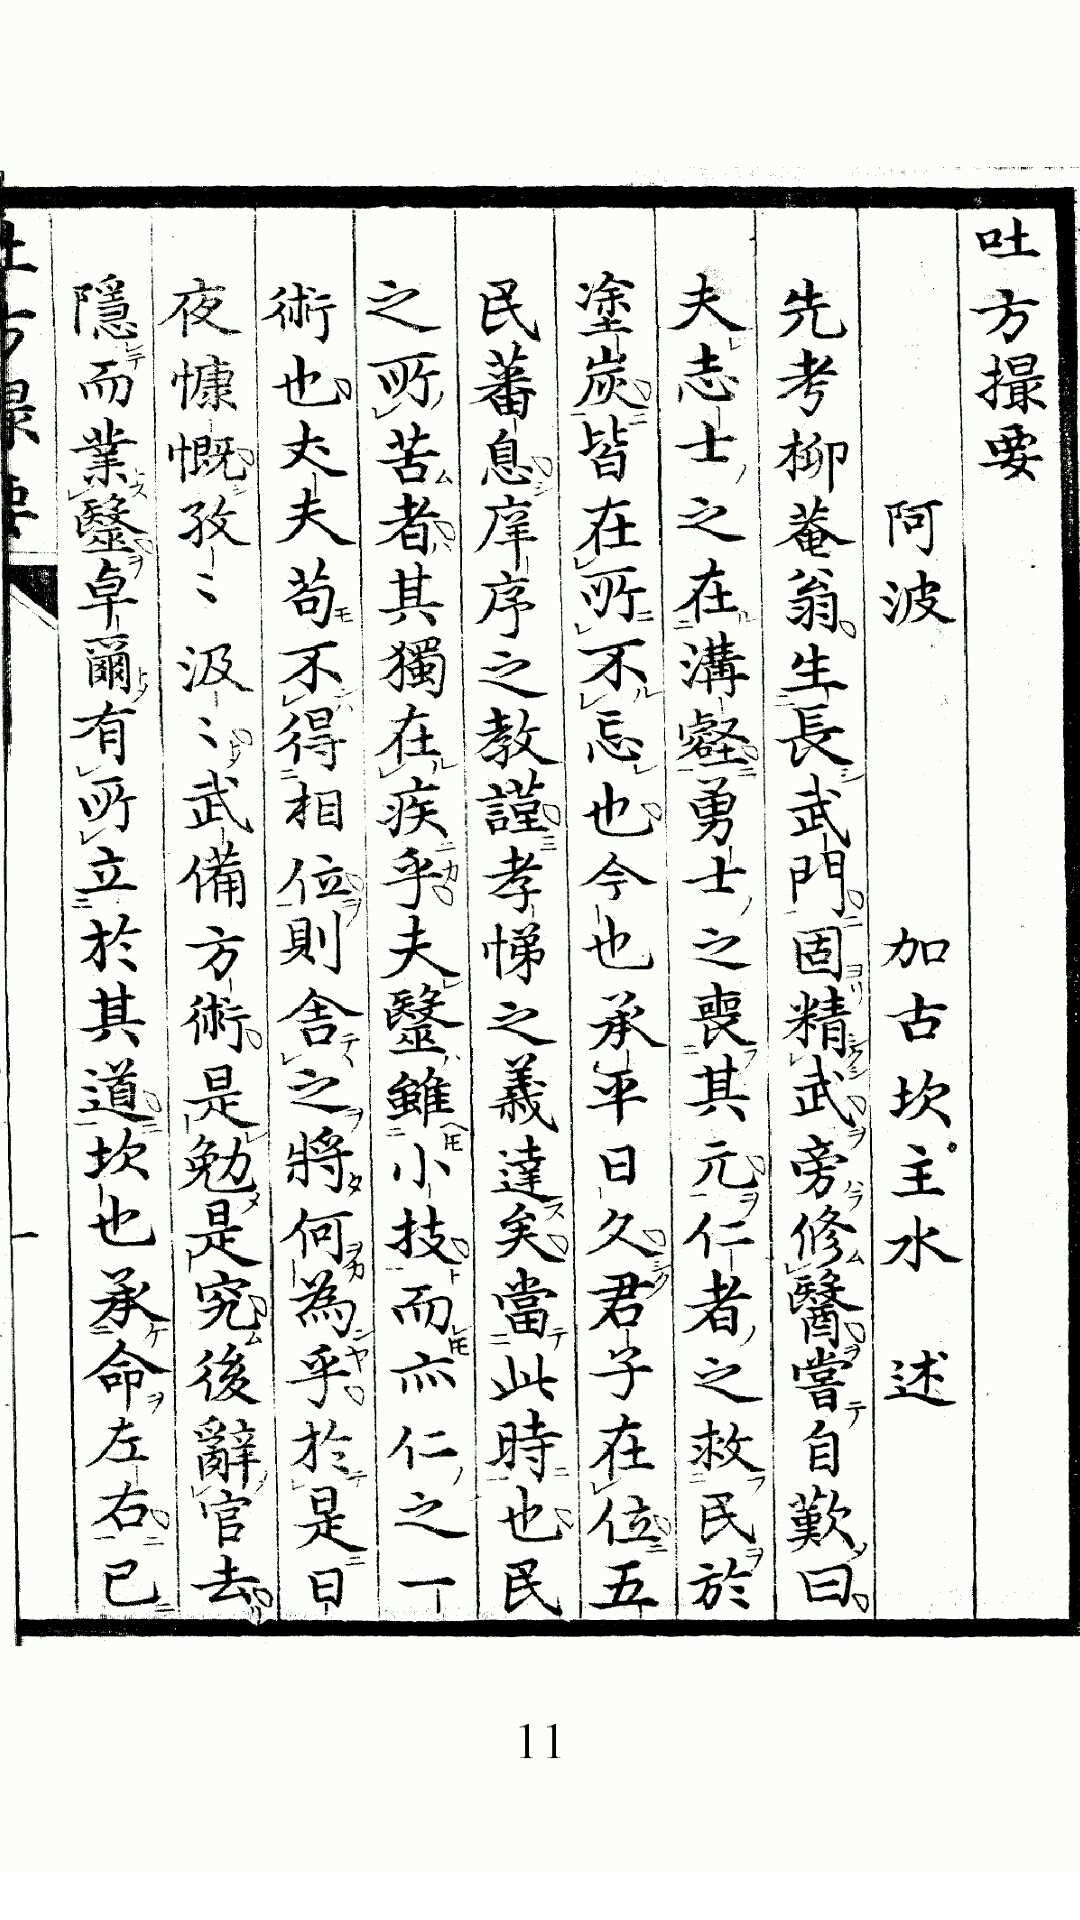 吐方撮要
阿波 加古坎主水 述
先考柳菴翁生長武門固精武旁修醫嘗自歎曰
夫志士之在溝壑勇士之喪其元仁者之救民於
塗炭皆在所不忘也今也承平日久君子在位五
民蕃息庠序之教謹孝悌之義達矣當此時也民
之所苦者其獨在疾乎夫毉雖小技而亦仁之一
術也丈夫苟不得相位則舍之將何為乎於是日
夜慷慨孜〻汲〻武備方術是勉是究後辭官去
隱而業毉卓爾有所立於其道坎也承命左右已
一
11